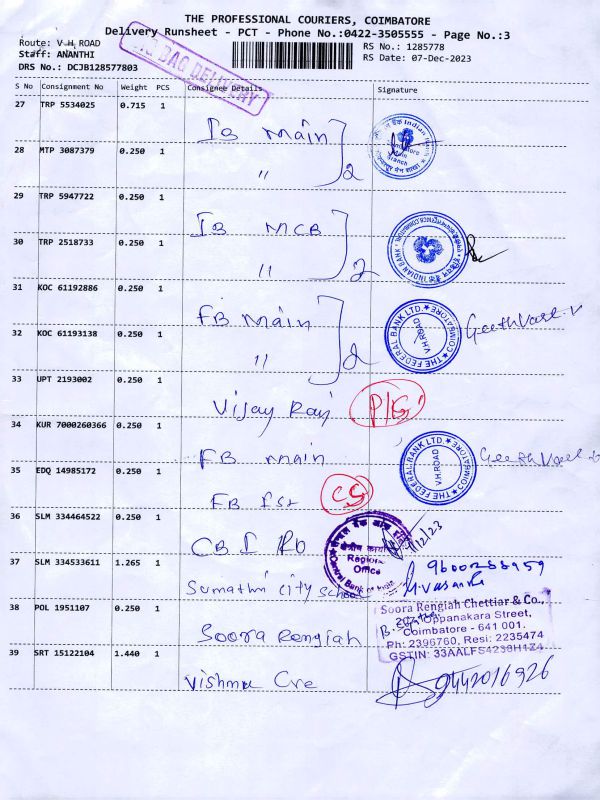 THE PROFESSIONAL COURIERS, COIMBATORE
Delivery Runsheet - PCT - Phone No.:0422-3505555 - Page No.:3
Route: V H ROAD
Staff: ANANTHI
DRS No.: DCJB128577803
RS No.: 1285778
RS Date: 07-Dec-2023
BAG DELIVERY
S No Consignment No Weight PCS Consignee Details Signature
27 TRP 5534025 0.715 1 IB Main
28 MTP 3087379 0.250 1 " 2
29 TRP 5947722 0.250 1 IB MCB
30 TRP 2518733 0.250 1 " 2
INDIAN BANK
31 KOC 61192886 0.250 1 FB Main
32 KOC 61193138 0.250 1 " 2
THE FEDERAL BANK LTD. COIMBATORE
V.H.ROAD
33 UPT 2193002 0.250 1 Vijay Raj
34 KUR 7000260366 0.250 1 FB main
THE FEDERAL BANK LTD. COIMBATORE
V.H.ROAD
35 EDQ 14985172 0.250 1 FB
36 SLM 334464522 0.250 1 CBI Ro
क्षेत्रीय
Regional
Office
Central Bank of India
/12/23
37 SLM 334533611 1.265 1 Sumathi city
9600288959
38 POL 1951107 0.250 1 Soora Rengiah
Soora Rengiah Chettiar & Co.,
Oppanakara Street,
Coimbatore - 641 001.
Ph: 2396760, Resi: 2235474
GSTIN: 33AALFS4238H1Z4
39 SRT 15122104 1.440 1 Vishnu Cre
9442016926